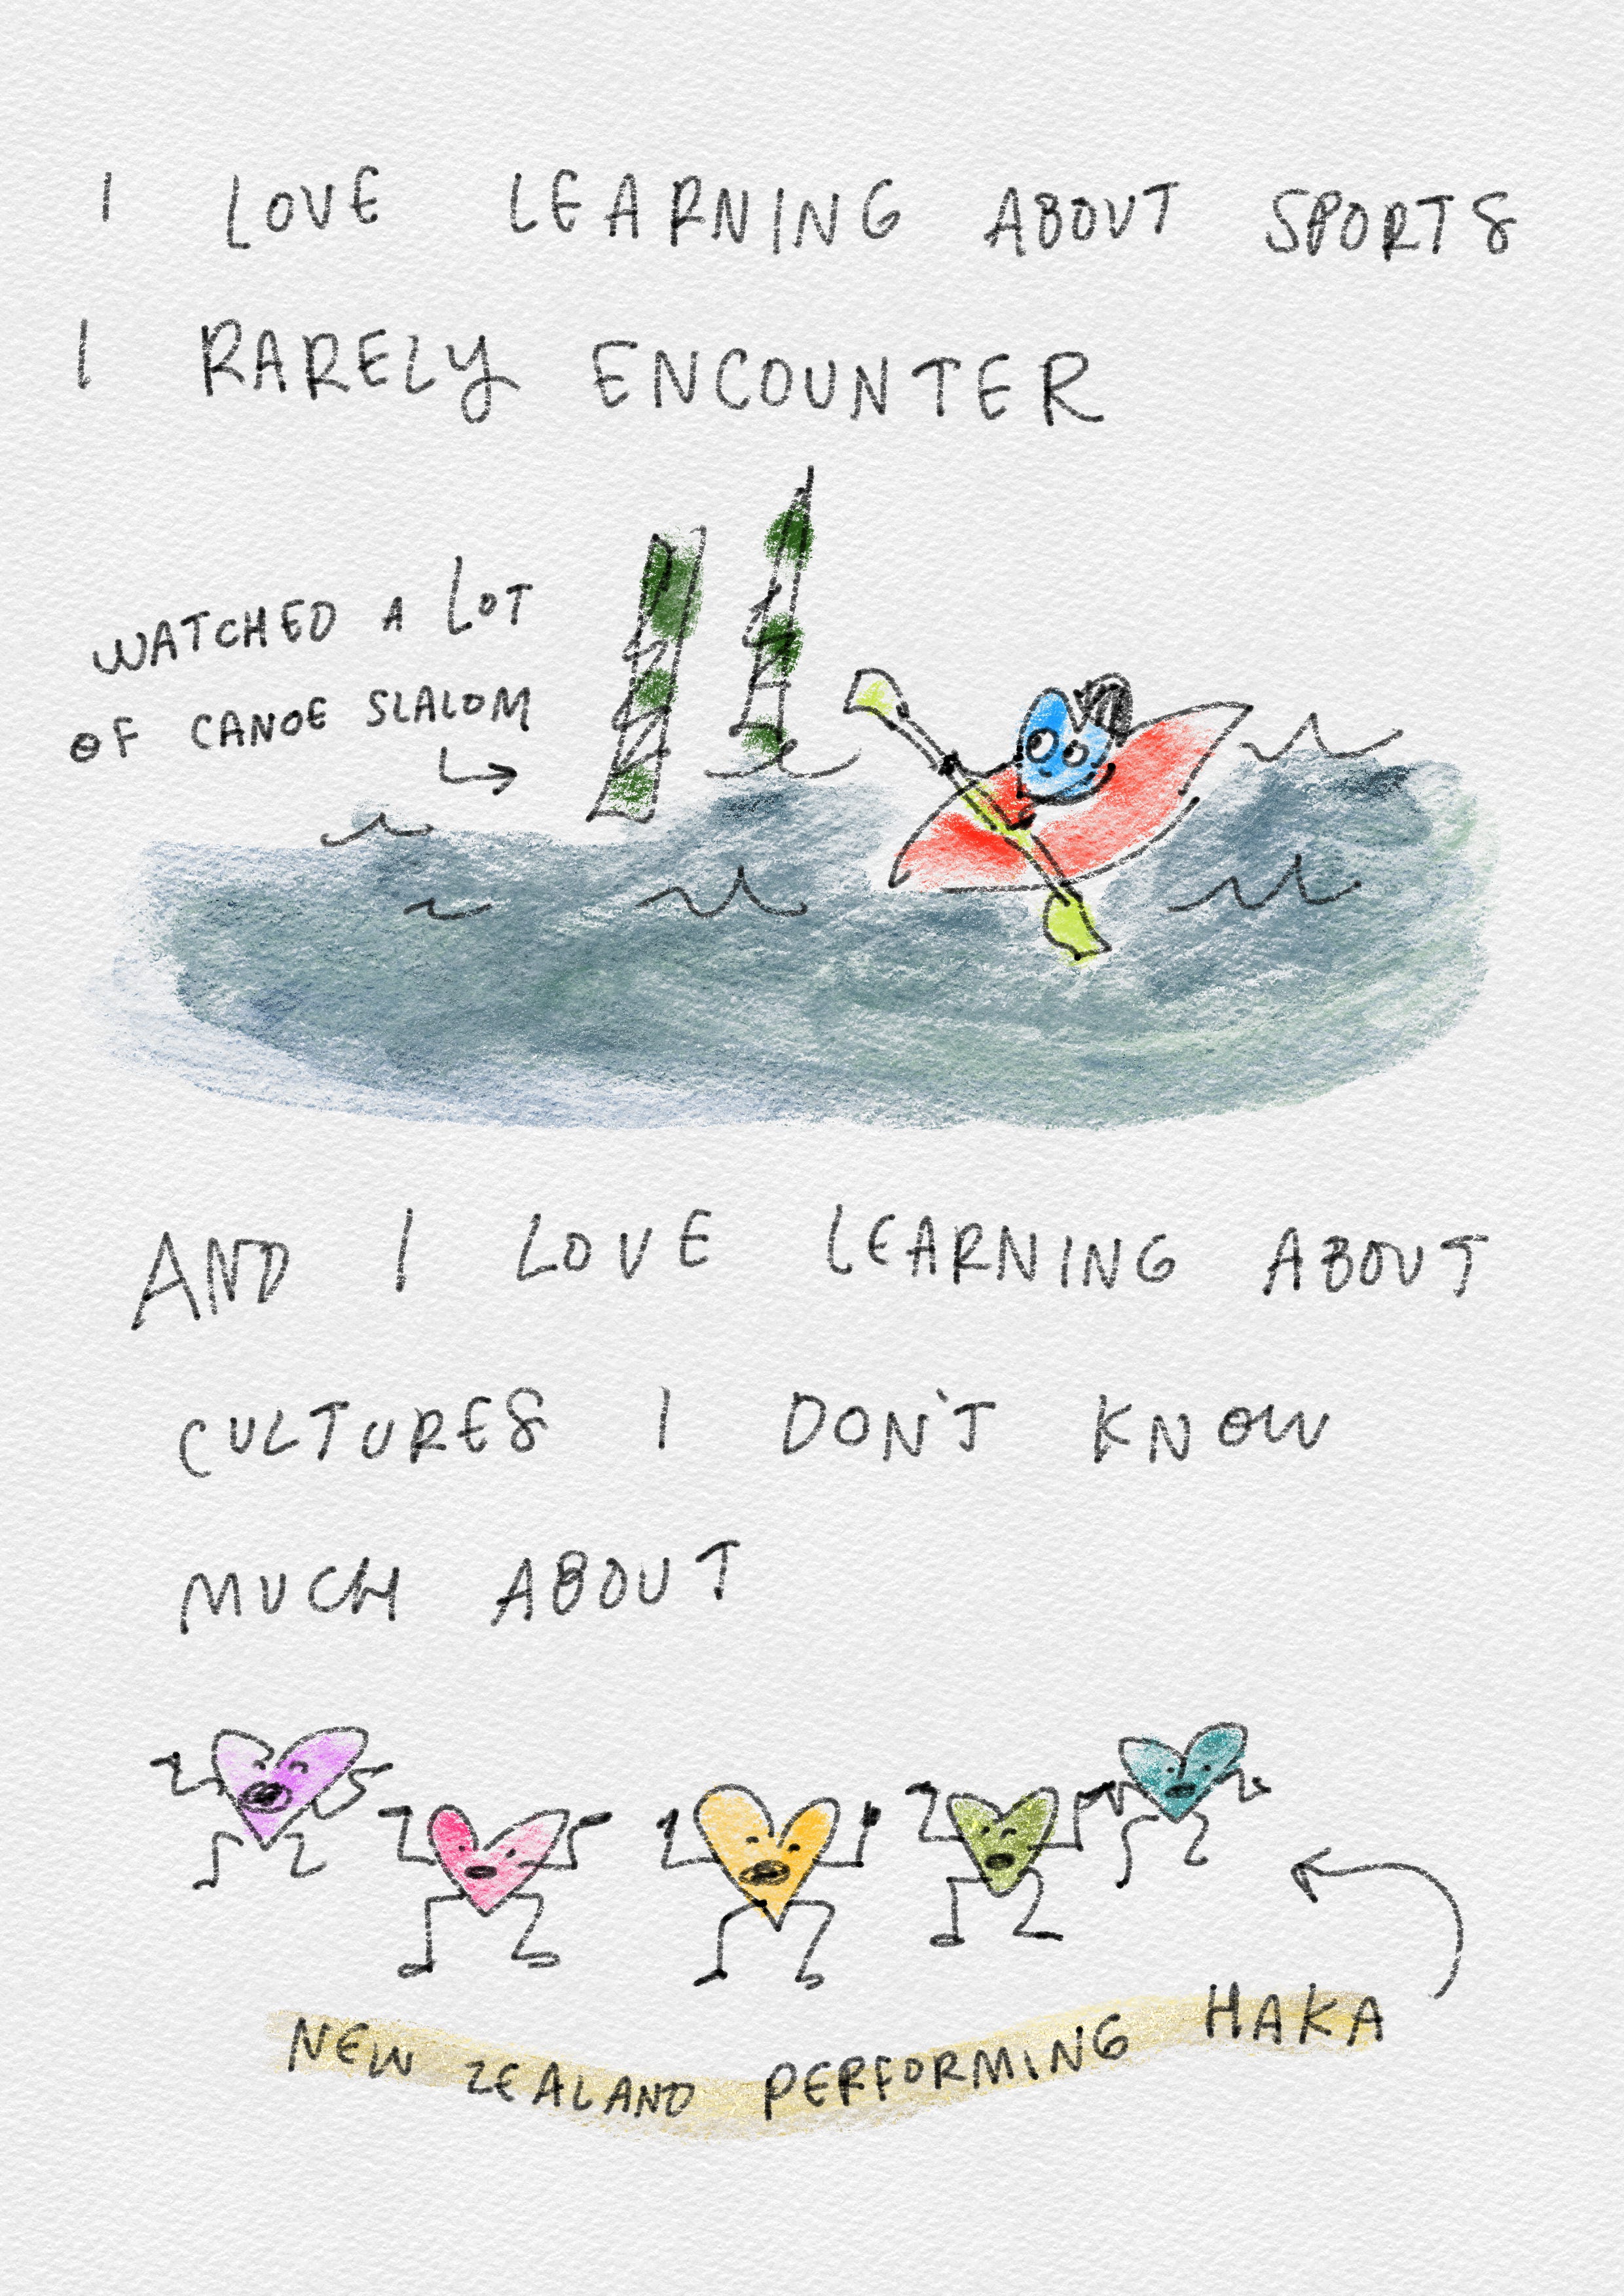 I LOVE LEARNING ABOUT SPORTS
I RARELY ENCOUNTER
WATCHED A LOT
OF CANOE SLALOM
AND I LOVE LEARNING ABOUT
CULTURES I DON'T KNOW
MUCH ABOUT
NEW ZEALAND PERFORMING HAKA